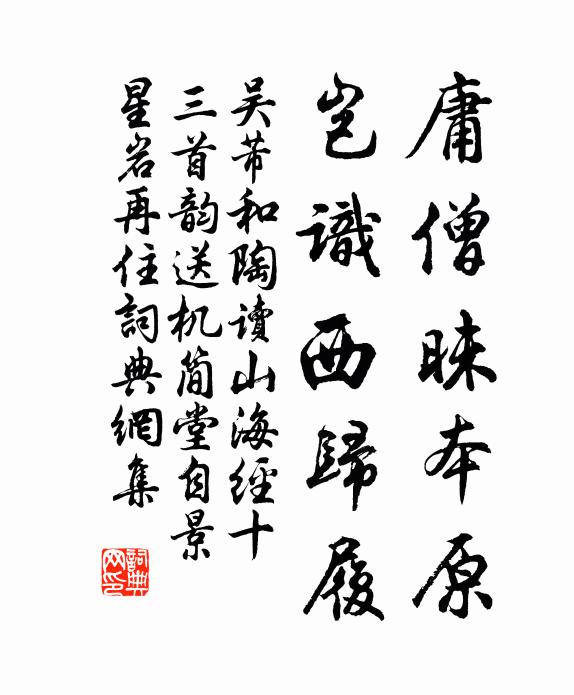 庸僧昧本原
岂識西歸履
吴芾和陶讀山海經十
三首韵送机简堂自景
星岩再住詞典網集
詞典网印